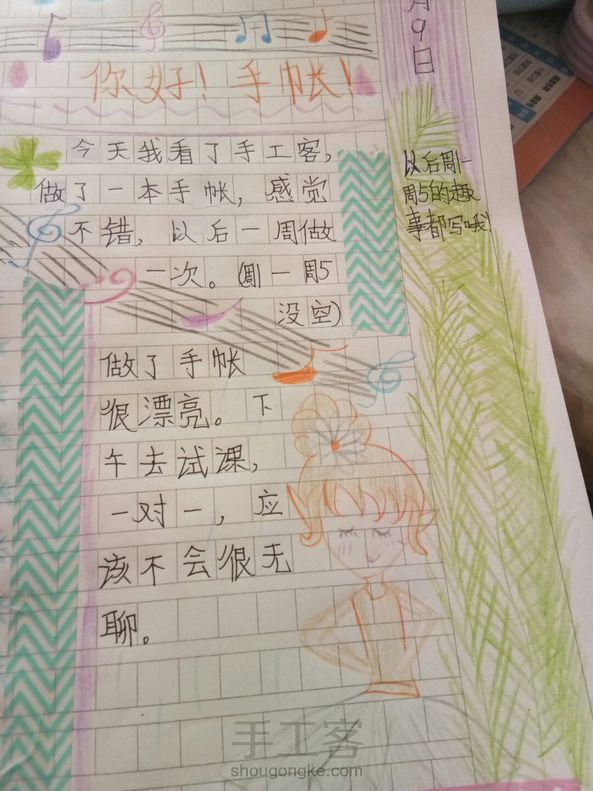 月9日
你好！手帐！
今天我看了手工客，
做了一本手帐，感觉
不错，以后一周做
一次。（周一-周5
没空）
以后周一-
周5的趣
事都写哦！
做了手帐
很漂亮。下
午去试课，
一对一，应
该不会很无
聊。
手工客
shougongke.com